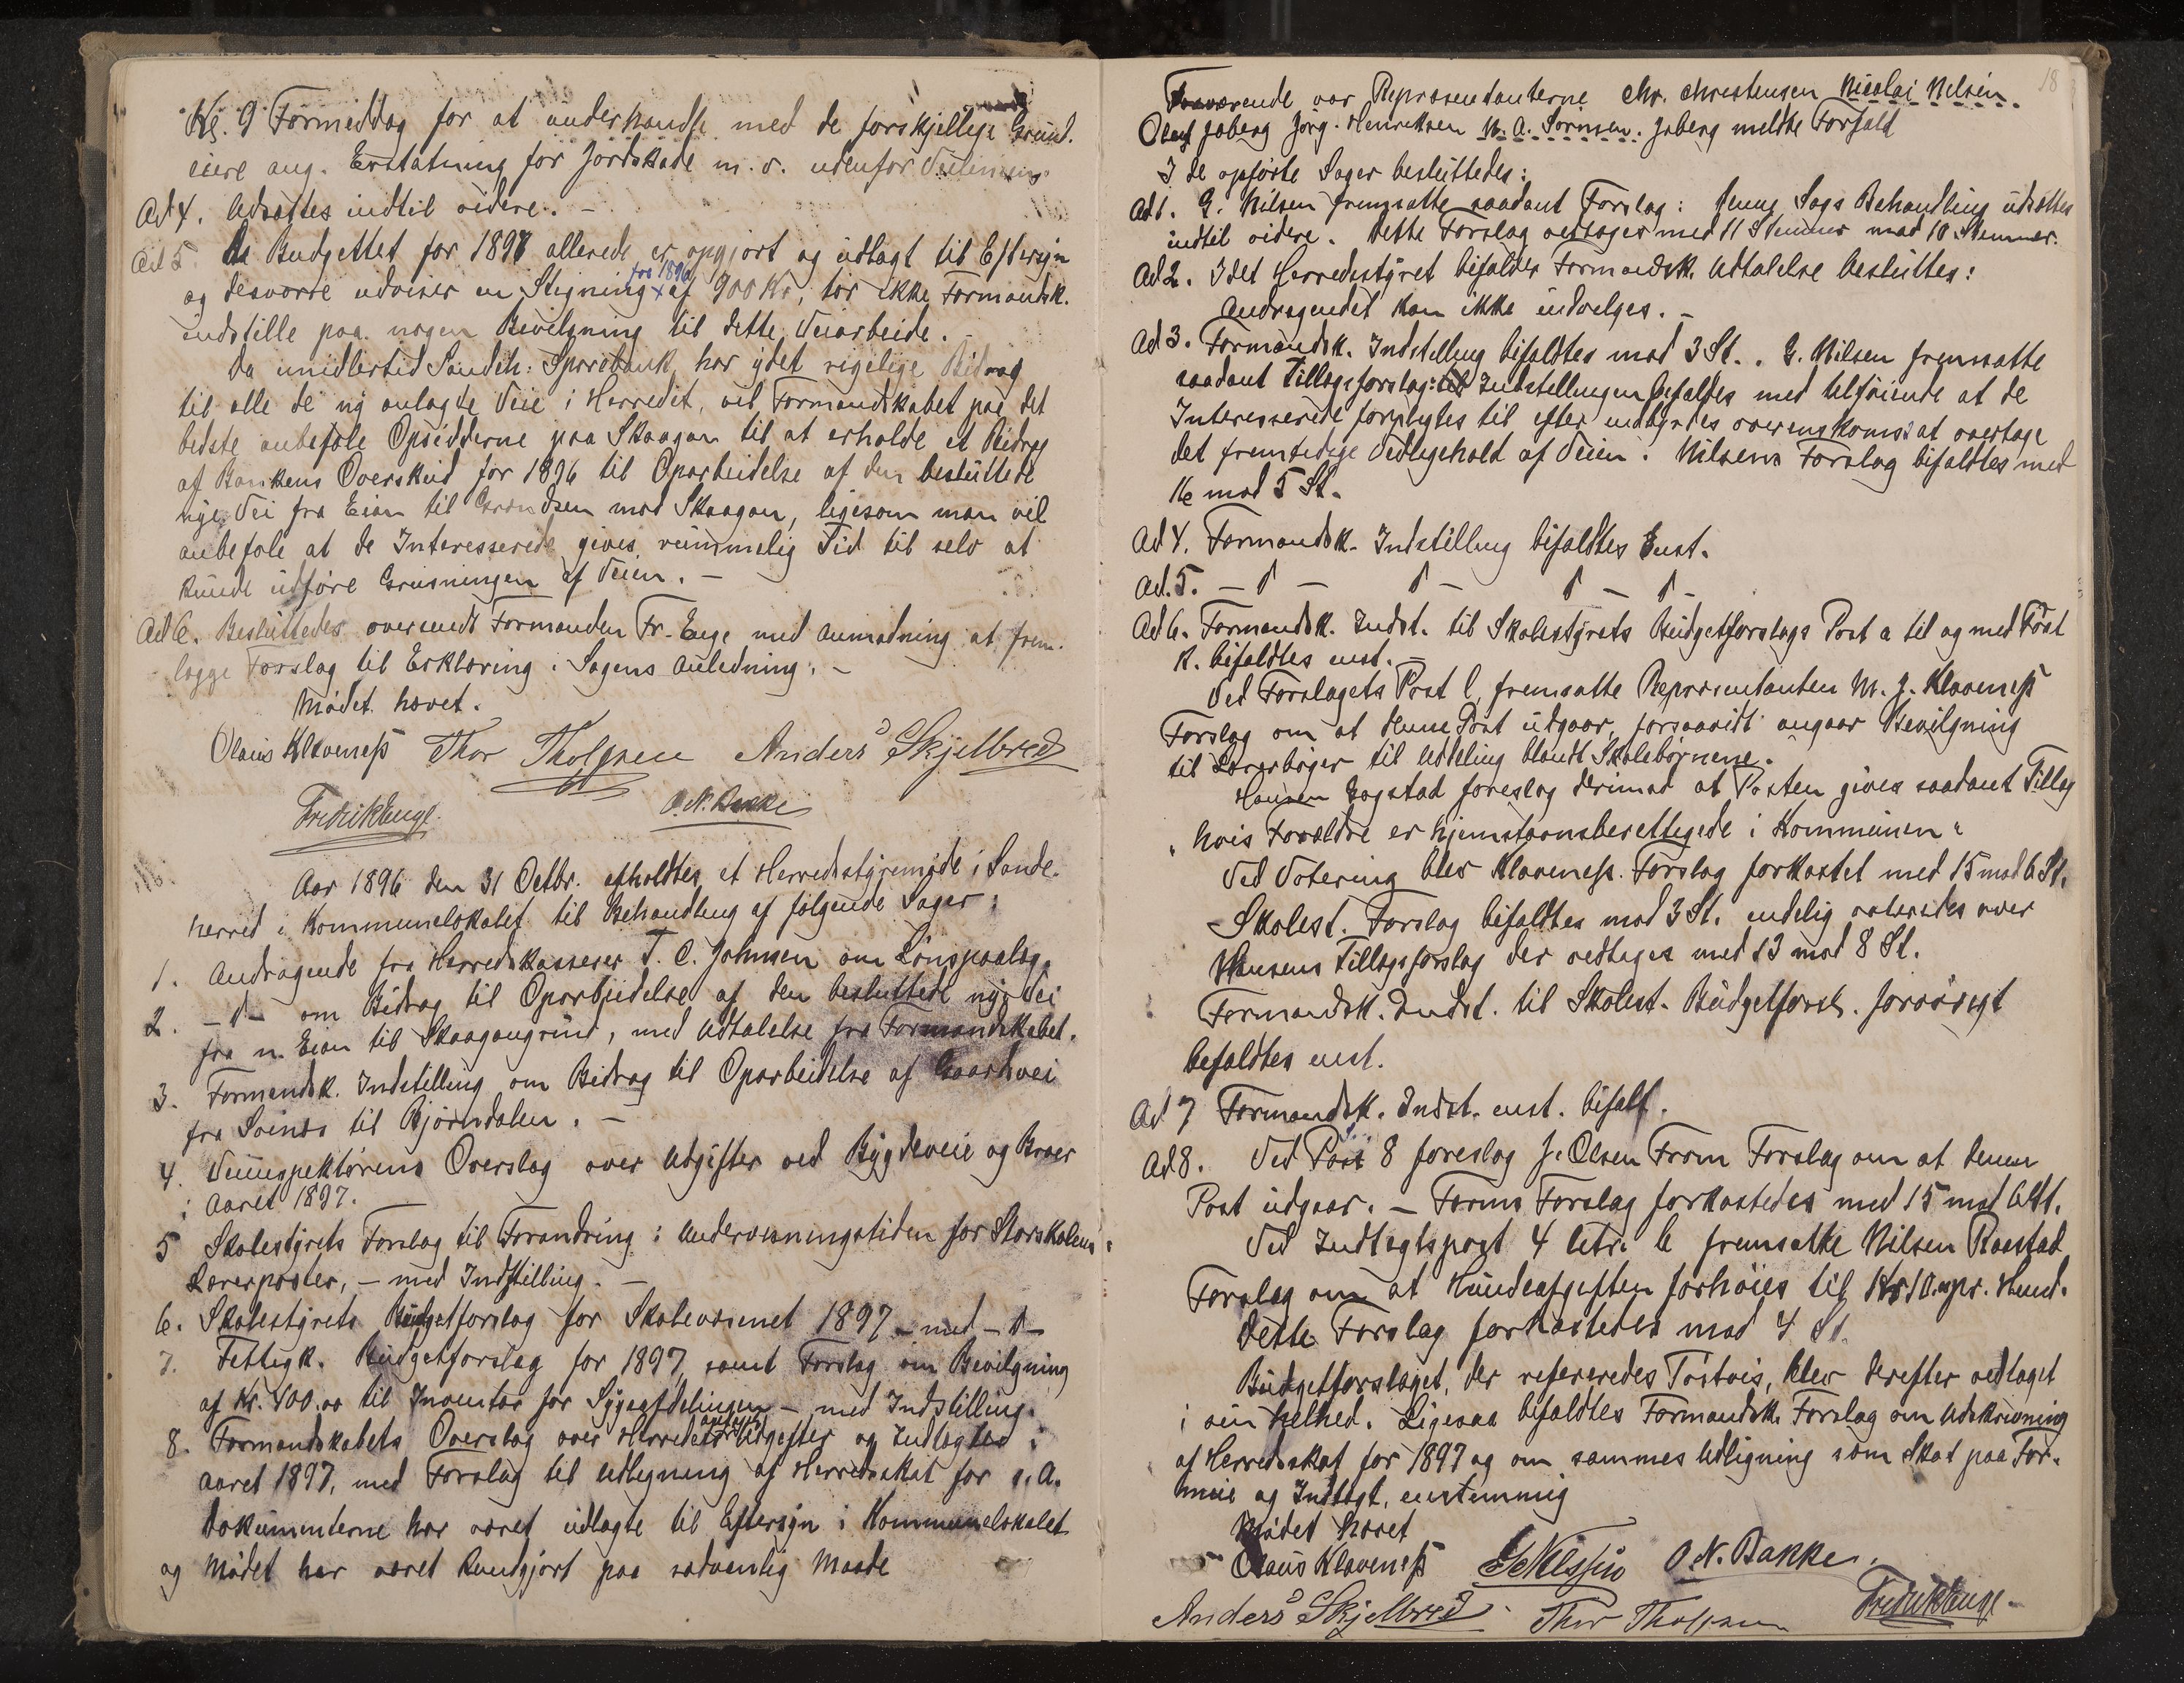 Kl. 9 Formiddag for at underhandle med de forskjellige Grund-
eiere ang. Erstatning for Jordskade m. v. udenfor Veilinien.
Ad 4. Udsættes indtil videre. –
Ad 5. Da Budgettet for 1897 allerede er opgjort og udlagt til Eftersyn
og desværre udviser en Stigning fra 1896 af 900 Kr, tør ikke Formandsk.
indstille paa nogen Bevilgning til dette Veiarbeide. –
Da imidlertid Sandeh: Sparebank har ydet rigelige Bidrag
til alle de ny anlagte Veie i Herredet, vil Formandskabet paa det
bedste anbefale Opsidderne paa Skaagan til at erholde et Bidrag
af Bankens Overskud for 1896 til Oparbeidelse af den besluttede
nye Vei fra Eian til Grændsen mod Skaagan, ligesom man vil
anbefale at de Interesserede gives rummelig Tid til selv at
kunde udføre Grusningen af Veien. –
Ad 6. Besluttedes oversendt Formanden Fr. Enge med Anmodning at frem-
lægge Forslag til Erklæring i Sagens Anledning. –
Mødet hævet.
Olaus Klaveness Thor Tholfsen Anders Skjelbred
Fredrik Enge O. N. Bakke
Aar 1896 den 31 Octbr. afholdtes et Herredsstyremøde i Sande-
herred i Kommunelokalet til Behandling af følgende Sager:
1. Andragende fra Herredskasserer T. C. Johnsen om Lønspaalæg.
2. – d – om Bidrag til Oparbeidelse af den besluttede nye Vei
fra n. Eian til Skaagangrind, med Udtalelse fra Formandskabet.
3. Formandsk. Indstilling om Bidrag til Oparbeidelse af Gaardsvei
fra Svinæs til Bjørndalen. –
4. Veiinspektørens Overslag over Udgifter ved Bygdeveie og Broer
i Aaret 1897.
5 Skolestyrets Forslag til Forandring i Undervisningstiden for Storskolens
Lærerposter, – med Indstilling. –
6. Skolestyrets Budgetforslag for Skolevæsenet 1897 – med – d –
7. Fattigk. Budgetforslag for 1897, samt Forslag om Bevilgning
af Kr. 400.00 til Inventar for Sygeafdelingen – med Indstilling.
8. Formandskabets Overslag over Herredets Udgifter og Indtægter i
Aaret 1897, med Forslag til Udligning af Herredsskat for s. A.
Dokumenterne har været udlagte til Eftersyn i Kommunelokalet
og Mødet har været kundgjort paa sædvanlig Maade
18
Fraværende var Repræsentanterne Chr. Christensen Nicolai Nilsen.
Oluf Jaberg Jørg. Henriksen N. A. Sørnsen. Jaberg meldte Forfald
I de opførte Sager besluttedes:
Ad 1. G. Nilsen fremsatte saadant Forslag: Denne Sags Behandling udsættes
indtil videre. Dette Forslag vedtoges med 11 Stemmer mod 10 Stemmer.
Ad 2. Idet Herredsstyret bifalder Formandsk. Udtalelse besluttes:
Andragendet kan ikke indvilges. –
Ad 3. Formandsk. Indstilling bifaldtes mod 3 St. . G. Nilsen fremsatte
saadant Tillægsforslag: Indstillingen bifaldes med tilføiende at de
Interesserede forpligtes til efter indbyrdes overenskomst at overtage
det fremtidige Vedligehold af Veien. Nilsens Forslag bifaldtes med
16 mod 5 St.
Ad 4. Formandsk. Indstilling bifaldtes Enst.
Ad. 5. – d – d – d – d –
Ad 6. Formandsk. Indst. til Skolestyrets Budgetforslags Post a til og med Post
k. bifaldtes enst. –
Ved Forslagets Post l, fremsatte Repræsentanten M. J. Klaveness
Forslag om at denne Post udgaar, forsaavidt angaar Bevilgning
til Lærerbøger til Uddeling blandt Skolebørnene.
Hansen Bogstad foreslog derimod at Posten gives saadant Tillæg
„hvis Forældre er hjemstavnsberettigede i Kommunen“
Ved Votering blev Klaveness. Forslag forkastet med 15 mod 6 St.
Skolest. Forslag bifaldtes mod 3 St. endelig voteredes over
Hansens Tillægsforslag der vedtoges med 13 mod 8 St.
Formandsk. Indst. til Skolest. Budgetforsl. forøvrigt
bifaldtes enst.
Ad 7 Formandsk. Indst. enst. bifalt.
Ad 8. Ved Post 8 foreslog J. Olsen From Forslag om at denne
Post udgaar. – Froms Forslag forkastedes med 15 mod 6 St.
Ved Indtægtspost 4 litr. b fremsatte Nilsen Raastad
Forslag om at Hundeafgiften forhøies til Kr 10.00 pr. Hund.
Dette Forslag forkastedes mod 4 St.
Budgetforslaget, der refereredes Postvis, blev derefter vedtaget
i sin helhed. Ligesaa bifaldtes Formandsk. Forslag om Udskrivning
af Herredsskat for 1897 og om sammes Udligning som Skat paa For-
mue og Indtægt, enstemmig
Mødet hævet
Olaus Klaveness G Nilssen O. N. Bakke.
Anders Skjelbred. Thor Tholfsen Fredrik Enge